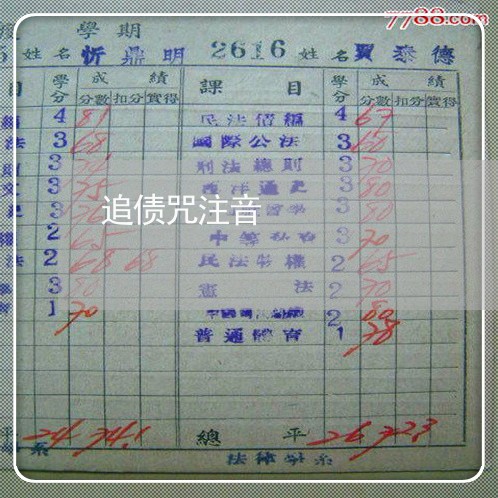 7788.com
學期
姓名 忻鼎明 2616 姓名 賈泰德
目 學分 成績 課目 學分 成績
分數 扣分 實得 分數 扣分 實得
4 81 民法債編 4 67
法 3 68 國際公法 3 60
3 刑法總則 3 70
3 75 西洋通史 3 80
3 3 80
追债咒注音
2 65 3 70
法 2 68 68 民法物權 2 65
3 80 憲法 2 70
1 70 2 80
普通體育 1 78
平 24 74.1 總平 26 72.3
系 法律學系